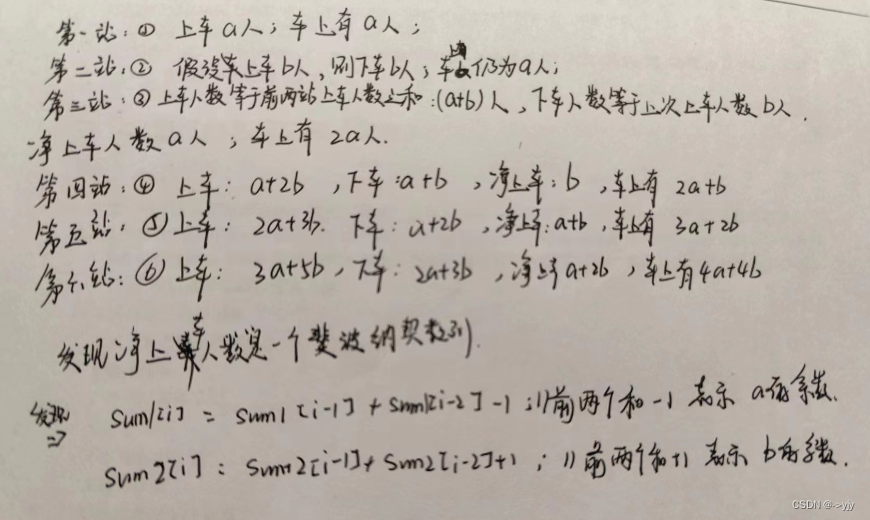 第一站：① 上车a人；车上有a人；
第二站：② 假设车上车b人，则下车b人；车上仍为a人；
第三站：③ 上车人数等于前两站上车人数之和：(a+b)人，下车人数等于上次上车人数b人．
净上车人数a人；车上有2a人．
第四站：④ 上车：a+2b，下车：a+b，净上车：b，车上有 2a+b
第五站：⑤ 上车：2a+3b．下车：a+2b，净上车：a+b，车上有 3a+2b
第六站：⑥ 上车：3a+5b，下车：2a+3b，净上车a+2b，车上有4a+4b
发现净上车人数是一个斐波纳契数列．
发现⇒ sum1[i] = sum1[i-1] + sum1[i-2] -1；//前两个和-1 表示 a的系数．
sum2[i] = sum2[i-1] + sum2[i-2]+1；//前两个和+1 表示 b的系数．
CSDN @->yjy